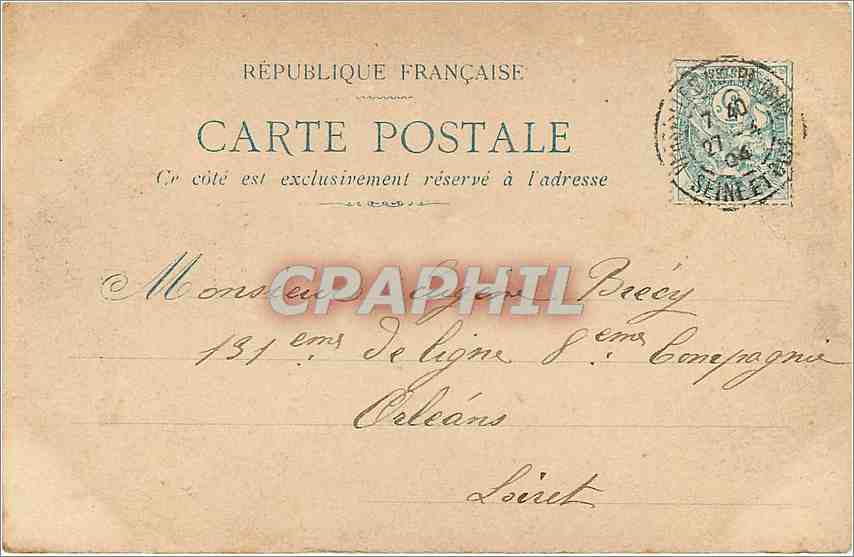 RÉPUBLIQUE FRANÇAISE
CARTE POSTALE
Ce côté est exclusivement réservé à l'adresse
7 40
27 4
04
SEINE ET
5
CPAPHIL
Monsieur Eugène Brécy
131 eme de ligne 8 eme Compagnie
Orléans
Loiret